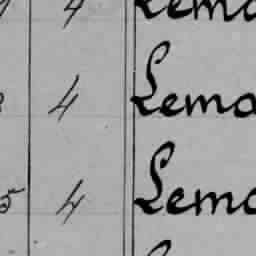 4 Lema
4 Lema
5 4 Lema